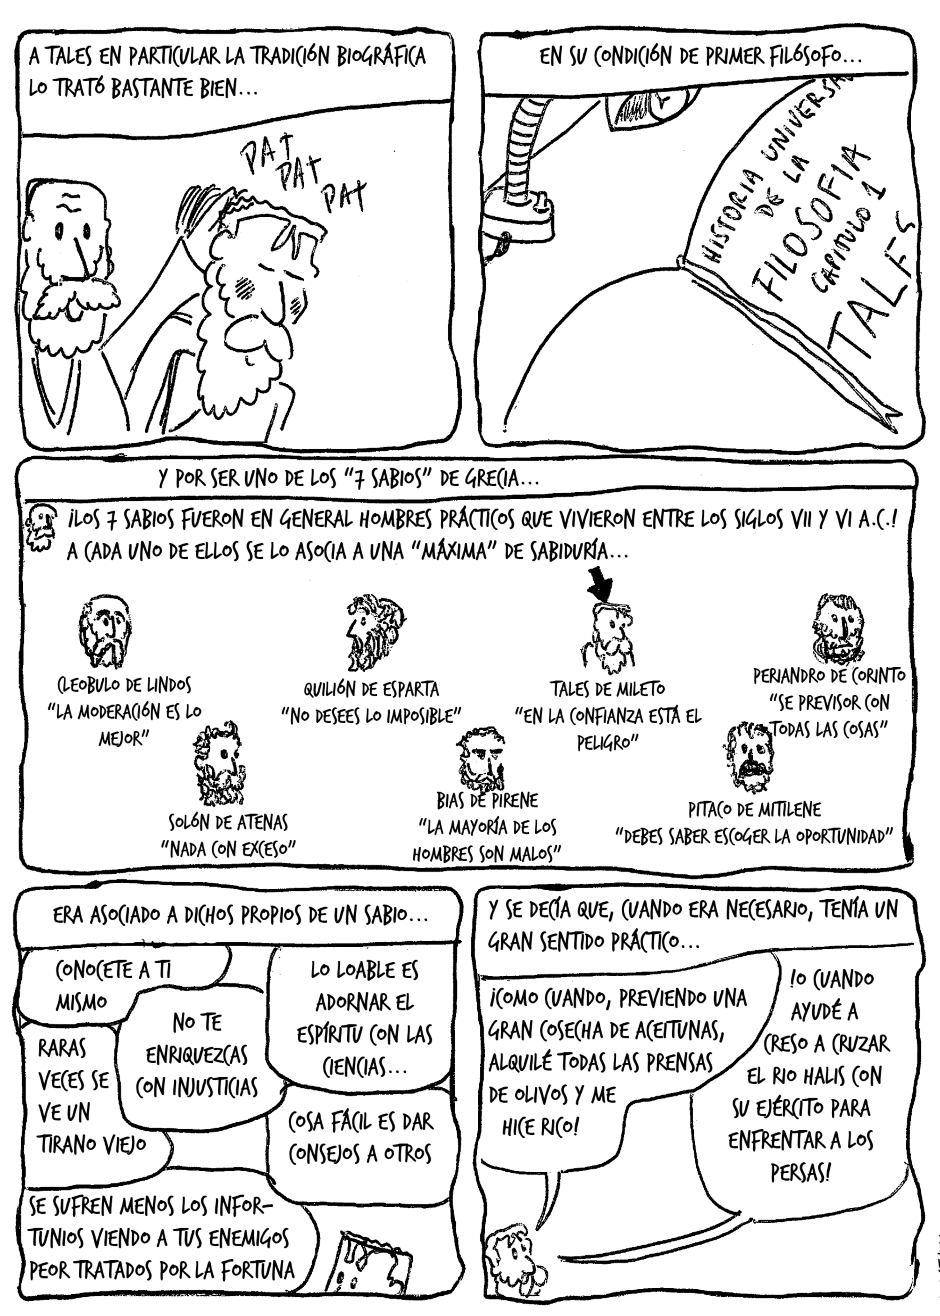 A TALES EN PARTICULAR LA TRADICIÓN BIOGRÁFICA
LO TRATÓ BASTANTE BIEN...
PAT
PAT
PAT
EN SU CONDICIÓN DE PRIMER FILÓSOFO...
HISTORIA UNIVERSAL
DE LA
FILOSOFIA
CAPITULO 1
TALES
Y POR SER UNO DE LOS "7 SABIOS" DE GRECIA...
¡LOS 7 SABIOS FUERON EN GENERAL HOMBRES PRÁCTICOS QUE VIVIERON ENTRE LOS SIGLOS VII Y VI A.C.!
A CADA UNO DE ELLOS SE LO ASOCIA A UNA "MÁXIMA" DE SABIDURÍA...
CLEOBULO DE LINDOS
"LA MODERACIÓN ES LO
MEJOR"
QUILIÓN DE ESPARTA
"NO DESEES LO IMPOSIBLE"
TALES DE MILETO
"EN LA CONFIANZA ESTÁ EL
PELIGRO"
PERIANDRO DE CORINTO
"SE PREVISOR CON
TODAS LAS COSAS"
SOLÓN DE ATENAS
"NADA CON EXCESO"
BIAS DE PIRENE
"LA MAYORÍA DE LOS
HOMBRES SON MALOS"
PITACO DE MITILENE
"DEBES SABER ESCOGER LA OPORTUNIDAD"
ERA ASOCIADO A DICHOS PROPIOS DE UN SABIO...
CONOCETE A TI
MISMO
NO TE
ENRIQUEZCAS
CON INJUSTICIAS
LO LOABLE ES
ADORNAR EL
ESPÍRITU CON LAS
CIENCIAS...
RARAS
VECES SE
VE UN
TIRANO VIEJO
COSA FÁCIL ES DAR
CONSEJOS A OTROS
SE SUFREN MENOS LOS INFOR-
TUNIOS VIENDO A TUS ENEMIGOS
PEOR TRATADOS POR LA FORTUNA
Y SE DECÍA QUE, CUANDO ERA NECESARIO, TENÍA UN
GRAN SENTIDO PRÁCTICO...
¡COMO CUANDO, PREVIENDO UNA
GRAN COSECHA DE ACEITUNAS,
ALQUILÉ TODAS LAS PRENSAS
DE OLIVOS Y ME
HICE RICO!
!O CUANDO
AYUDÉ A
CRESO A CRUZAR
EL RIO HALIS CON
SU EJÉRCITO PARA
ENFRENTAR A LOS
PERSAS!